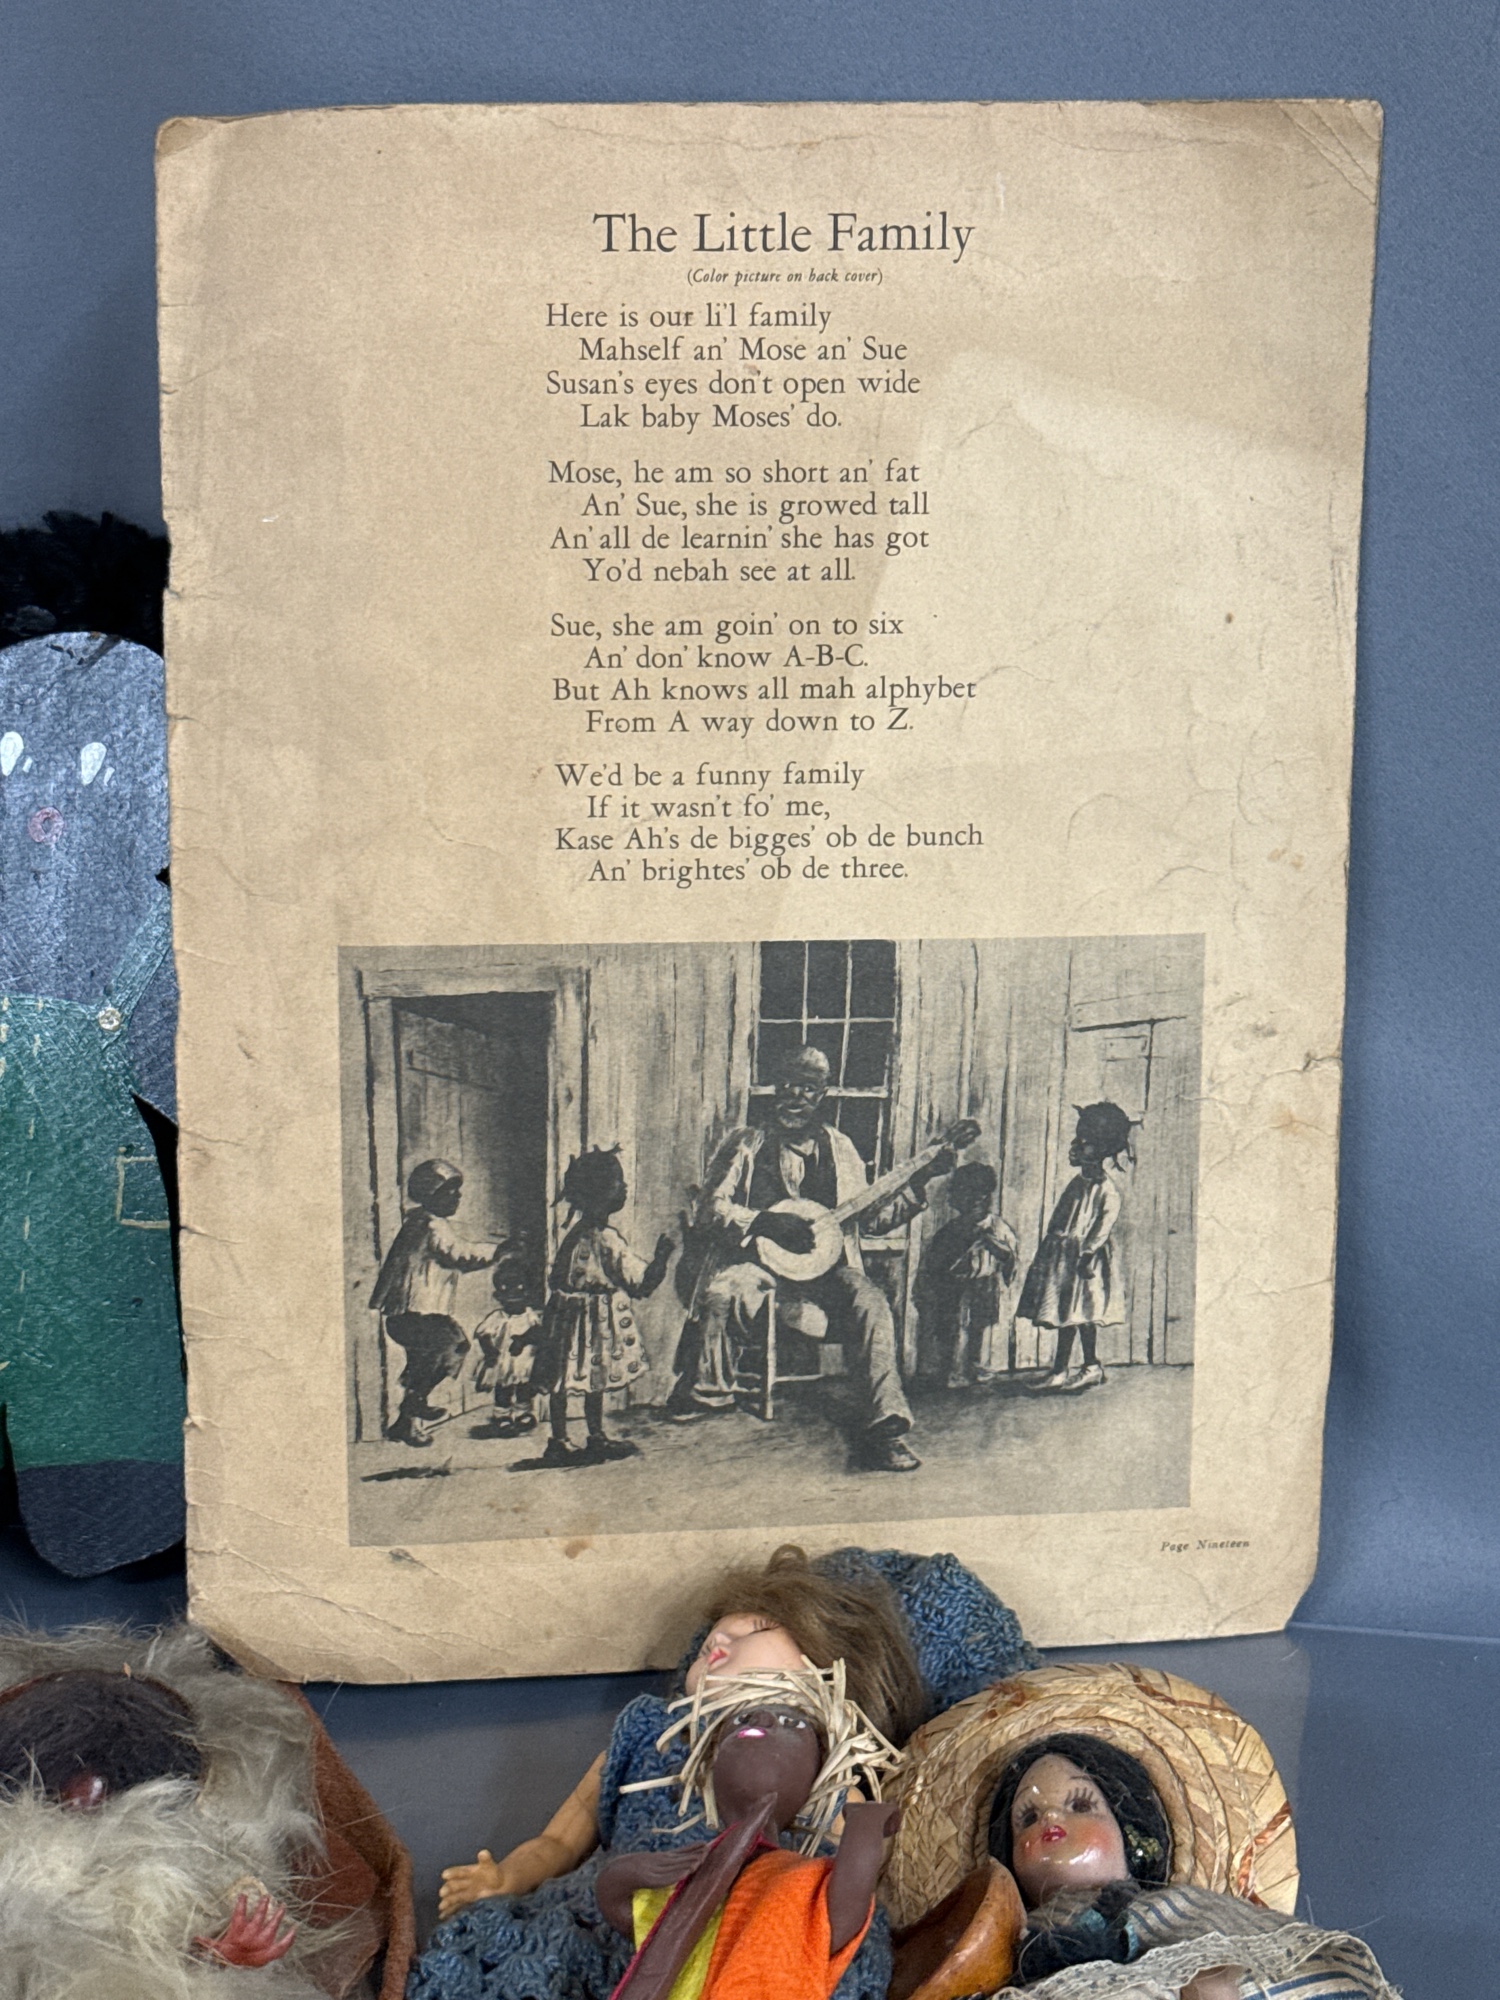 The Little Family
(Color picture on back cover)
Here is our li'l family
Mahself an' Mose an' Sue
Susan's eyes don't open wide
Lak baby Moses' do.
Mose, he am so short an' fat
An' Sue, she is growed tall
An' all de learnin' she has got
Yo'd nebah see at all.
Sue, she am goin' on to six
An' don' know A-B-C.
But Ah knows all mah alphybet
From A way down to Z.
We'd be a funny family
If it wasn't fo' me,
Kase Ah's de bigges' ob de bunch
An' brightes' ob de three.
Page Nineteen